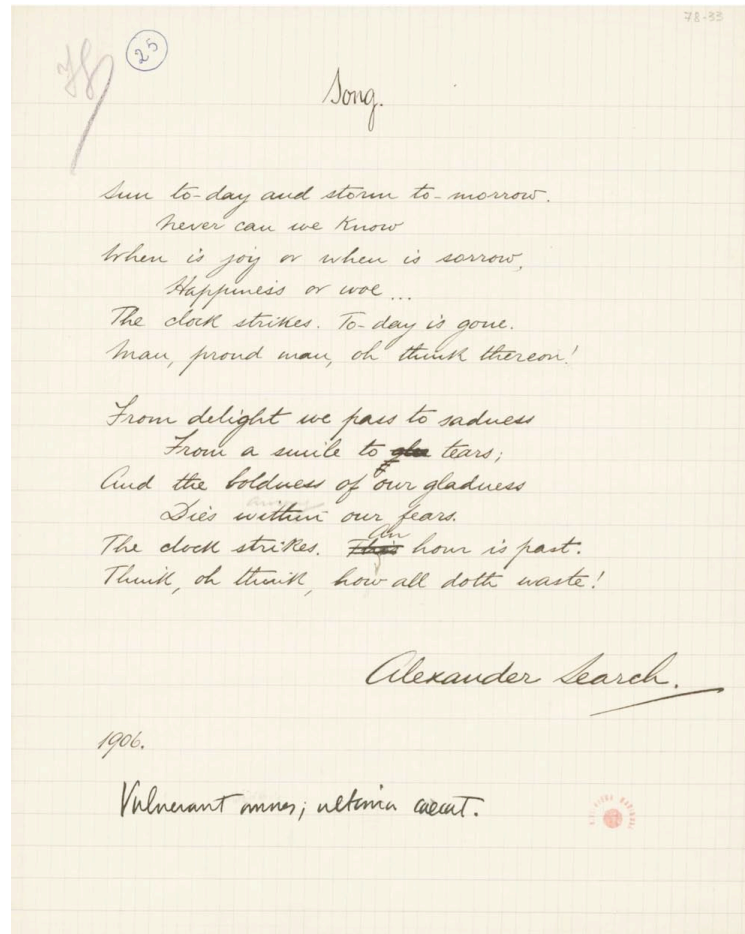 78-33
25
Song.
Sun to-day and storm to-morrow.
Never can we know
When is joy or when is sorrow,
Happiness or woe...
The clock strikes. To-day is gone.
Man, proud man, oh think thereon!
From delight we pass to sadness
From a smile to tears;
And the boldness of our gladness
Dies within our fears.
The clock strikes. An hour is past.
Think, oh think, how all doth waste!
Alexander Search.
1906.
Vulnerant omnes; ultima